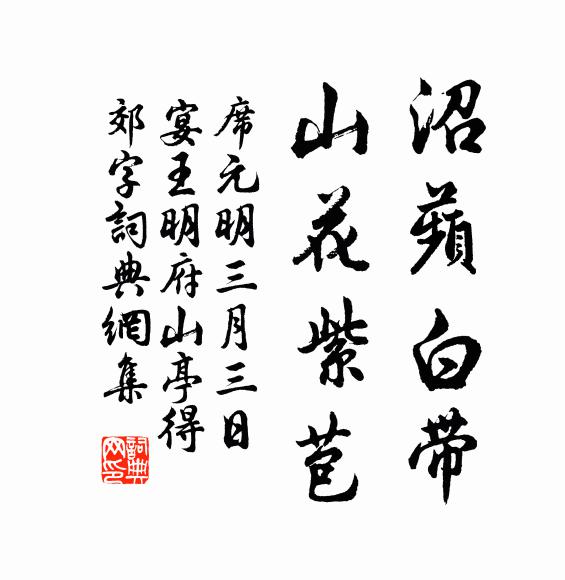 沼蘋白带
山花紫苞
席元明三月三日
宴王明府山亭得
郊字詞典網集
詞典网印